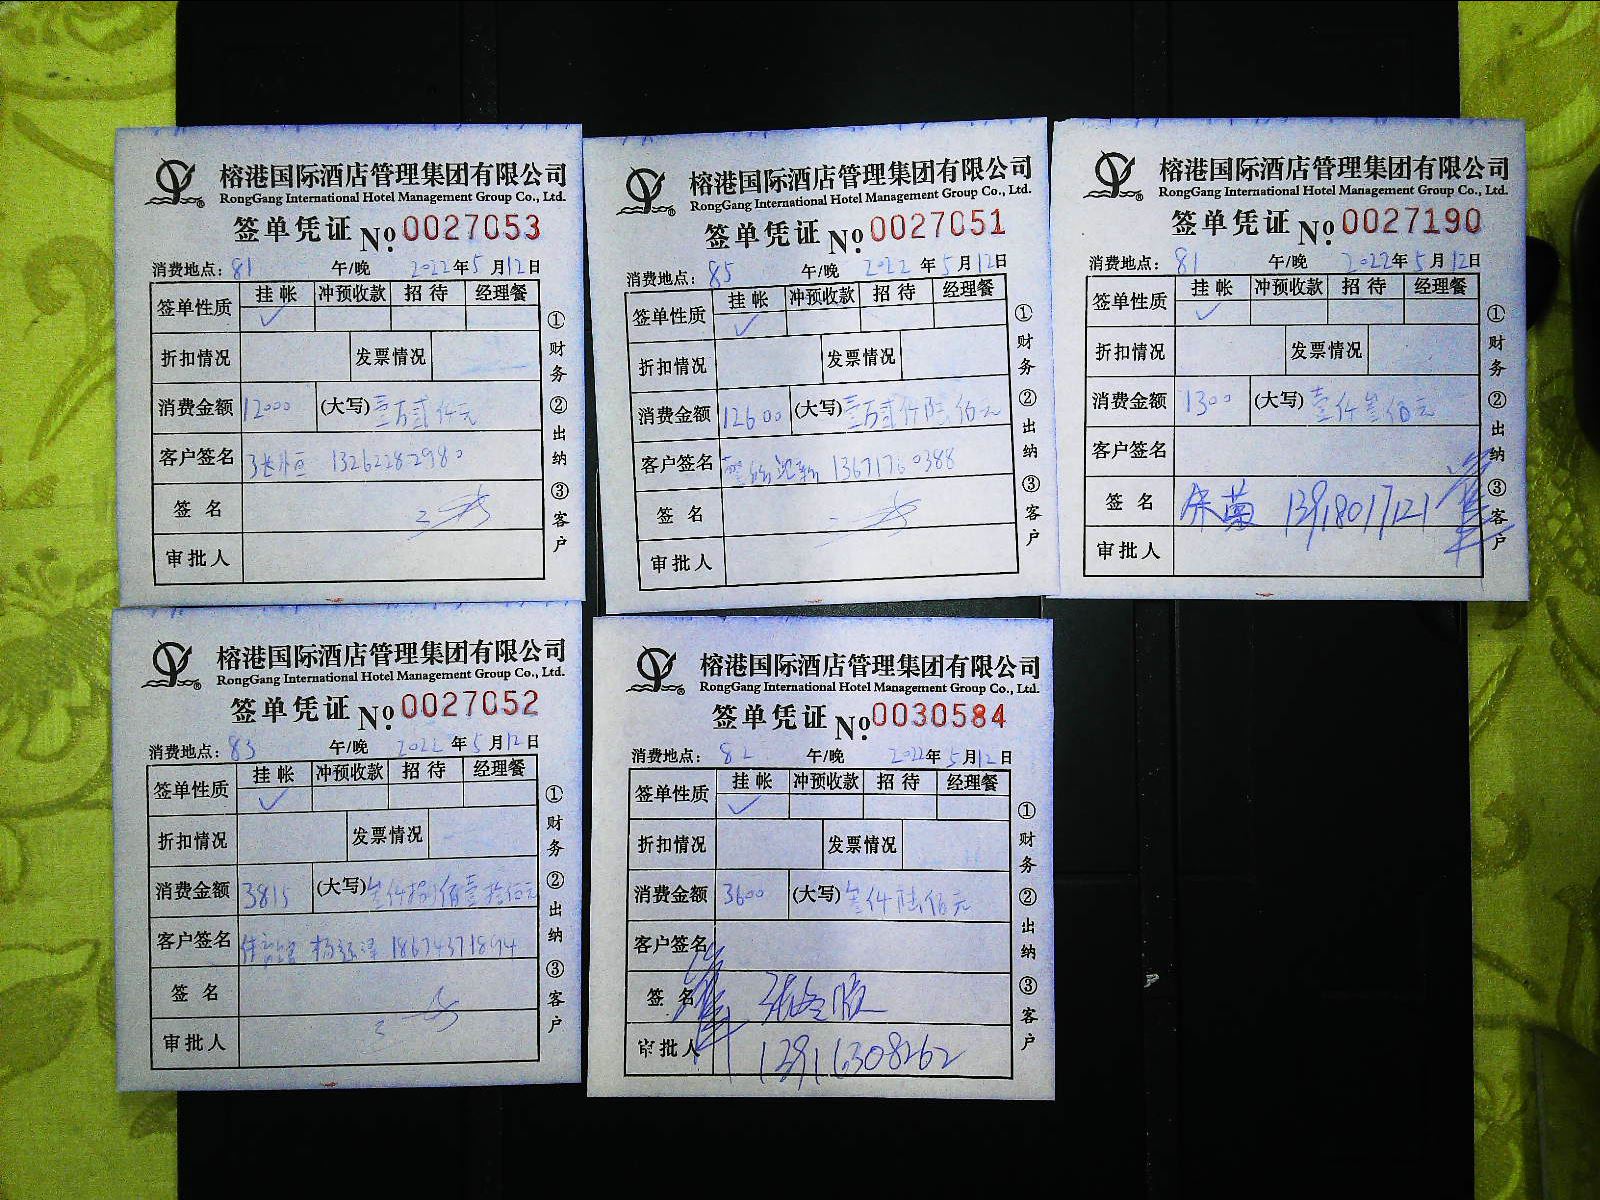 榕港国际酒店管理集团有限公司
RongGang International Hotel Management Group Co., Ltd.
签单凭证 No. 0027053
消费地点: 81 午/晚 2022年5月12日
签单性质 挂帐 冲预收款 招待 经理餐
✓
折扣情况 发票情况
消费金额 12000 (大写) 壹万贰仟元
客户签名 13262282980
签名
审批人
①财务 ②出纳 ③客户
榕港国际酒店管理集团有限公司
RongGang International Hotel Management Group Co., Ltd.
签单凭证 No. 0027051
消费地点: 85 午/晚 2022年5月12日
签单性质 挂帐 冲预收款 招待 经理餐
✓
折扣情况 发票情况
消费金额 12600 (大写) 壹万贰仟陆佰元
客户签名 13671760388
签名
审批人
①财务 ②出纳 ③客户
榕港国际酒店管理集团有限公司
RongGang International Hotel Management Group Co., Ltd.
签单凭证 No. 0027190
消费地点: 81 午/晚 2022年5月12日
签单性质 挂帐 冲预收款 招待 经理餐
✓
折扣情况 发票情况
消费金额 1300 (大写) 壹仟叁佰元
客户签名
签名 朱菊 13918017121
审批人
①财务 ②出纳 ③客户
榕港国际酒店管理集团有限公司
RongGang International Hotel Management Group Co., Ltd.
签单凭证 No. 0027052
消费地点: 83 午/晚 2022年5月12日
签单性质 挂帐 冲预收款 招待 经理餐
✓
折扣情况 发票情况
消费金额 3815 (大写) 叁仟捌佰壹拾伍元
客户签名 18674371894
签名
审批人
①财务 ②出纳 ③客户
榕港国际酒店管理集团有限公司
RongGang International Hotel Management Group Co., Ltd.
签单凭证 No. 0030584
消费地点: 82 午/晚 2022年5月12日
签单性质 挂帐 冲预收款 招待 经理餐
✓
折扣情况 发票情况
消费金额 3600 (大写) 叁仟陆佰元
客户签名
签名
审批人 13916308262
①财务 ②出纳 ③客户